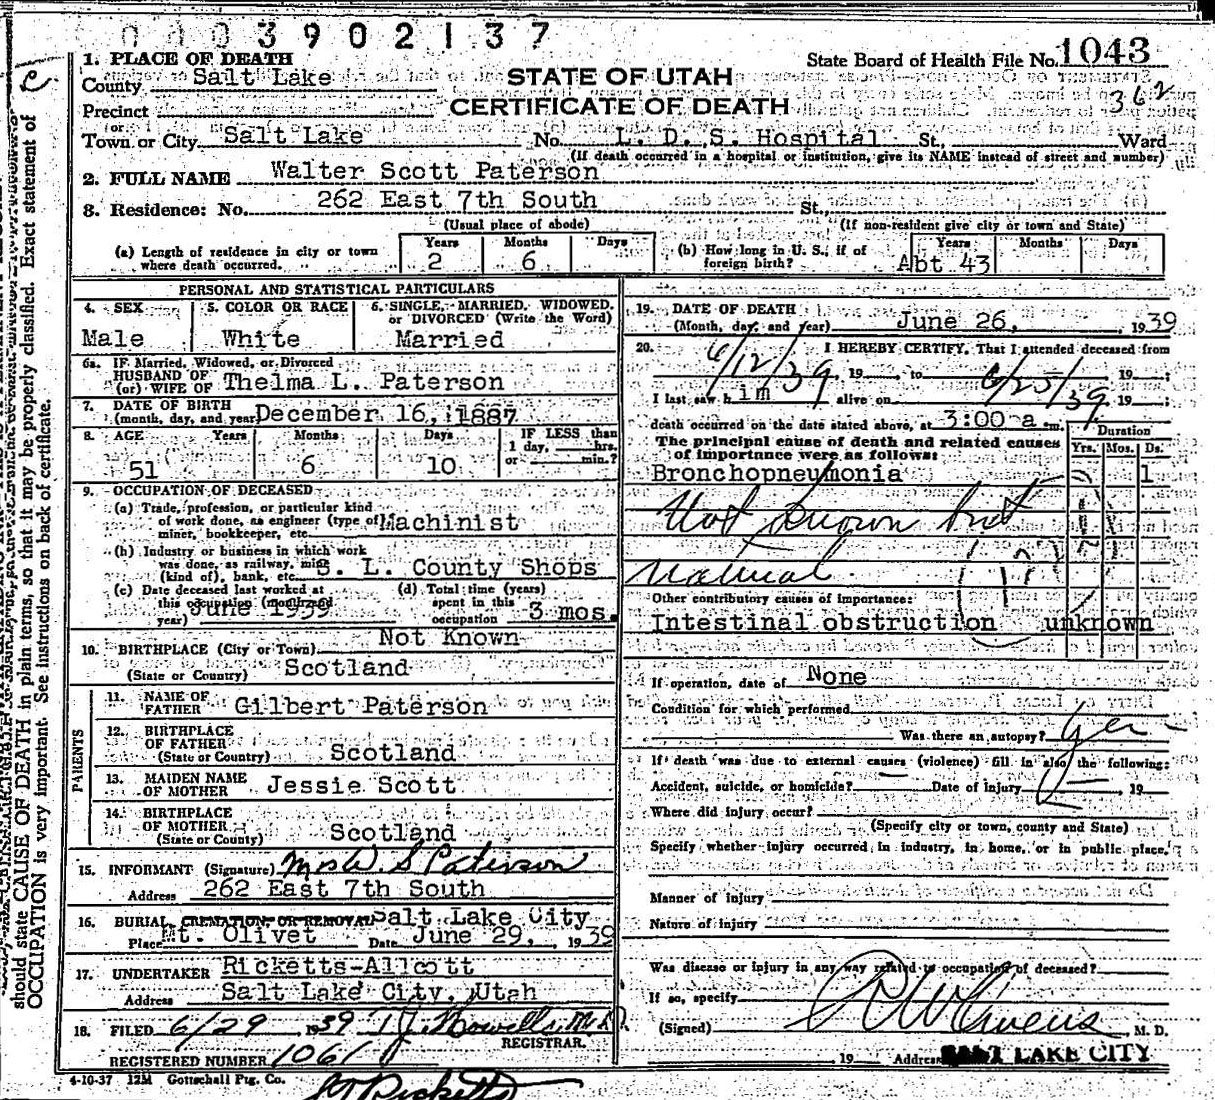 0003902137
State Board of Health File No. 1043
362
C
1. PLACE OF DEATH
County Salt Lake
STATE OF UTAH
CERTIFICATE OF DEATH
Precinct
or
Town or City Salt Lake No. L. D. S. Hospital St., Ward
(If death occurred in a hospital or institution, give its NAME instead of street and number)
2. FULL NAME Walter Scott Paterson
3. Residence: No. 262 East 7th South St.
(Usual place of abode) (If non-resident give city or town and State)
(a) Length of residence in city or town where death occurred. Years 2 Months 6 Days
(b) How long in U. S., if of foreign birth? Years Abt 43 Months Days
PERSONAL AND STATISTICAL PARTICULARS
4. SEX Male
5. COLOR OR RACE White
6. SINGLE, MARRIED, WIDOWED, or DIVORCED (Write the Word) Married
6a. IF Married, Widowed, or Divorced
HUSBAND OF
(or) WIFE OF Thelma L. Paterson
7. DATE OF BIRTH
(month, day, and year) December 16, 1887
8. AGE Years 51 Months 6 Days 10 IF LESS than 1 day, hrs. or min.?
9. OCCUPATION OF DECEASED
(a) Trade, profession, or particular kind
of work done, as engineer (type of) Machinist
miner, bookkeeper, etc.
(b) Industry or business in which work
was done, as railway, mine
(kind of), bank, etc. S. L. County Shops
(c) Date deceased last worked at
this occupation (month and
year) June 1939
(d) Total time (years)
spent in this
occupation 3 mos.
10. BIRTHPLACE (City or Town) Not Known
(State or Country) Scotland
PARENTS
11. NAME OF FATHER Gilbert Paterson
12. BIRTHPLACE OF FATHER
(State or Country) Scotland
13. MAIDEN NAME OF MOTHER Jessie Scott
14. BIRTHPLACE OF MOTHER
(State or Country) Scotland
15. INFORMANT (Signature) Mrs W S Paterson
Address 262 East 7th South
16. BURIAL, CREMATION, OR REMOVAL Salt Lake City
Place Mt. Olivet Date June 29, 1939
17. UNDERTAKER Ricketts-Allcott
Address Salt Lake City, Utah
18. FILED 6/29 1939 T J Howells, M.D.
REGISTRAR.
REGISTERED NUMBER 1061
4-10-37 12M Gottschall Ptg. Co.
Ricketts
19. DATE OF DEATH
(Month, day, and year) June 26, 1939
20. I HEREBY CERTIFY, That I attended deceased from
6/12/39, 19 , to 6/25/39, 19 ;
I last saw h im alive on 19 ;
death occurred on the date stated above, at 3:00 a m.
The principal cause of death and related causes
of importance were as follows:
Duration
Yrs. Mos. Ds.
Bronchopneumonia 1
Not known but
natural
Other contributory causes of importance:
Intestinal obstruction unknown
If operation, date of None
Condition for which performed
Was there an autopsy? yes
If death was due to external causes (violence) fill in also the following:
Accident, suicide, or homicide? Date of injury , 19
Where did injury occur?
(Specify city or town, county and State)
Specify whether injury occurred in industry, in home, or in public place,
Manner of injury
Nature of injury
Was disease or injury in any way related to occupation of deceased?
If so, specify
(Signed) R W Owens, M. D.
, 19 Address SALT LAKE CITY
should state CAUSE OF DEATH in plain terms, so that it may be properly classified. Exact statement of
OCCUPATION is very important. See instructions on back of certificate.